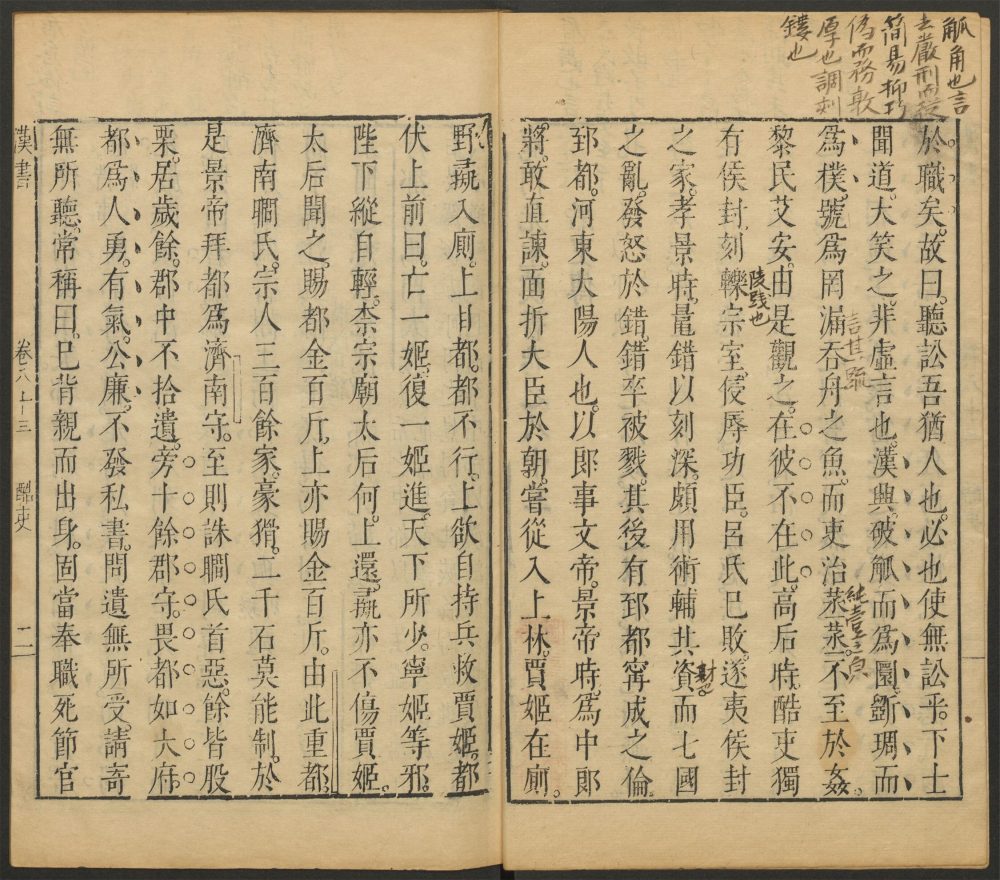 觚角也言
去嚴刑而從
簡易抑巧
偽而務敦
厚也調刻
鏤也
於職矣故曰聽訟吾猶人也必也使無訟乎下士
聞道大笑之非虛言也漢興破觚而為圜斲琱而
為樸號為罔漏吞舟之魚而吏治烝烝不至於姦
言其疏
純壹之
黎民艾安由是觀之在彼不在此高后時酷吏獨
有侯封刻轢宗室侵辱功臣呂氏已敗遂夷侯封
陵踐也
之家孝景時鼂錯以刻深頗用術輔其資而七國
財也
之亂發怒於錯錯卒被戮其後有郅都甯成之倫
郅都河東大陽人也以郎事文帝景帝時為中郎
將敢直諫面折大臣於朝嘗從入上林賈姬在廁
野彘入廁上目都都不行上欲自持兵救賈姬都
伏上前曰亡一姬復一姬進天下所少寧姬等邪
陛下縱自輕柰宗廟太后何上還彘亦不傷賈姬
太后聞之賜都金百斤上亦賜金百斤由此重都
濟南瞷氏宗人三百餘家豪猾二千石莫能制於
是景帝拜都為濟南守至則誅瞷氏首惡餘皆股
栗居歲餘郡中不拾遺旁十餘郡守畏都如大府
都為人勇有氣公廉不發私書問遺無所受請寄
無所聽常稱曰已背親而出身固當奉職死節官
漢書 卷八十三 酷吏 二